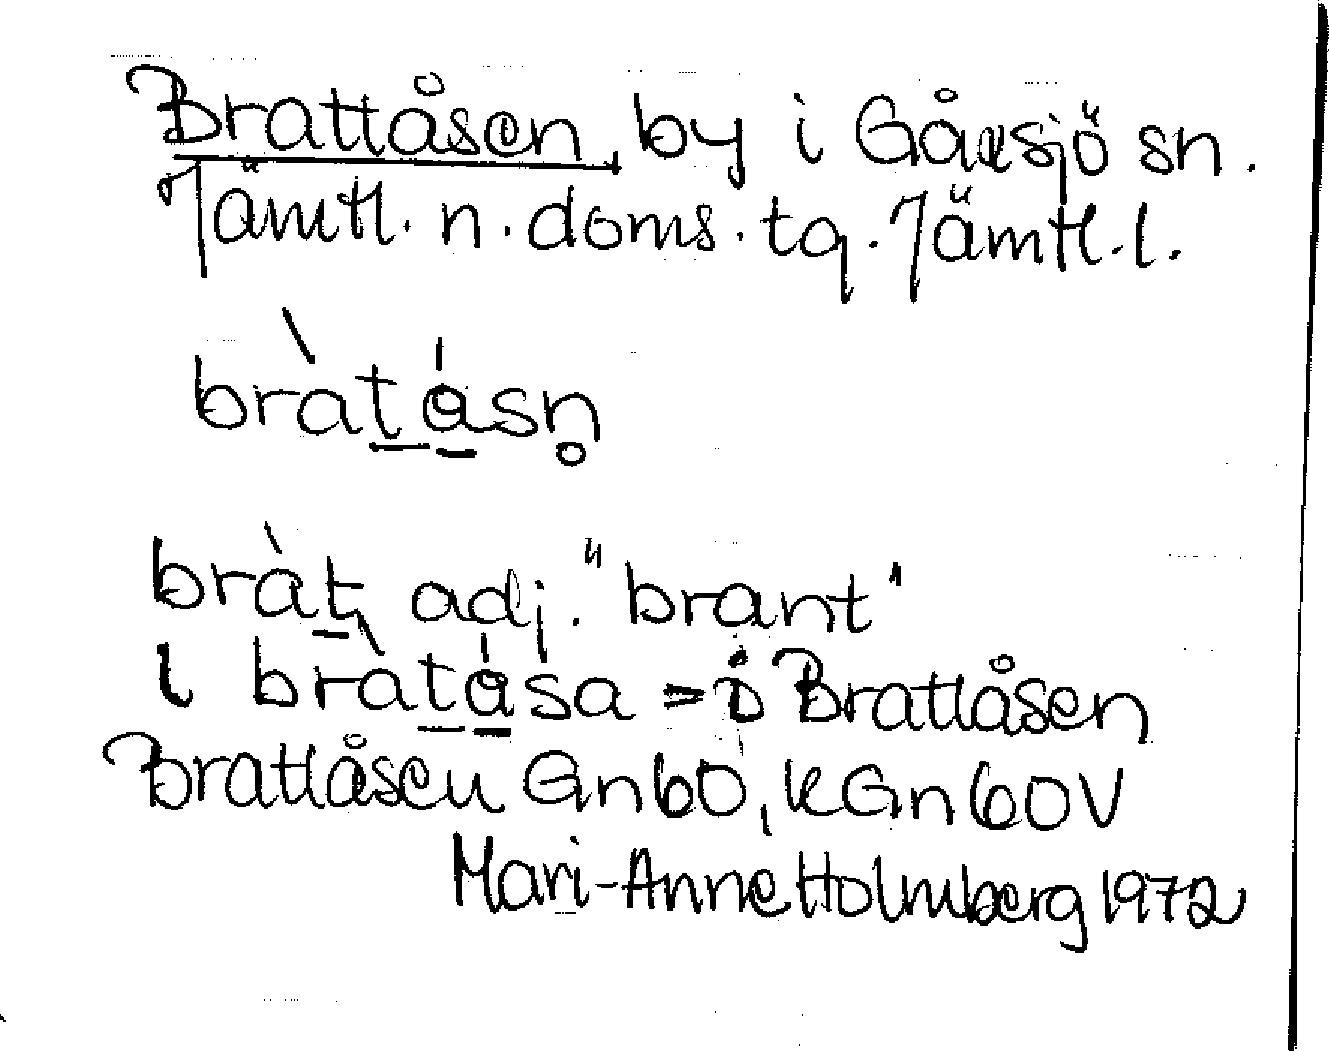 Brattåsen, by i Gåxsjö sn.
Jämtl. n. doms. tg. Jämtl. l.
bràtåsn̥
bràt, adj. "brant"
i bràtåsa = i Brattåsen
Brattåsen Gn 60, kGn 60V
Mari-Anne Holmberg 1972